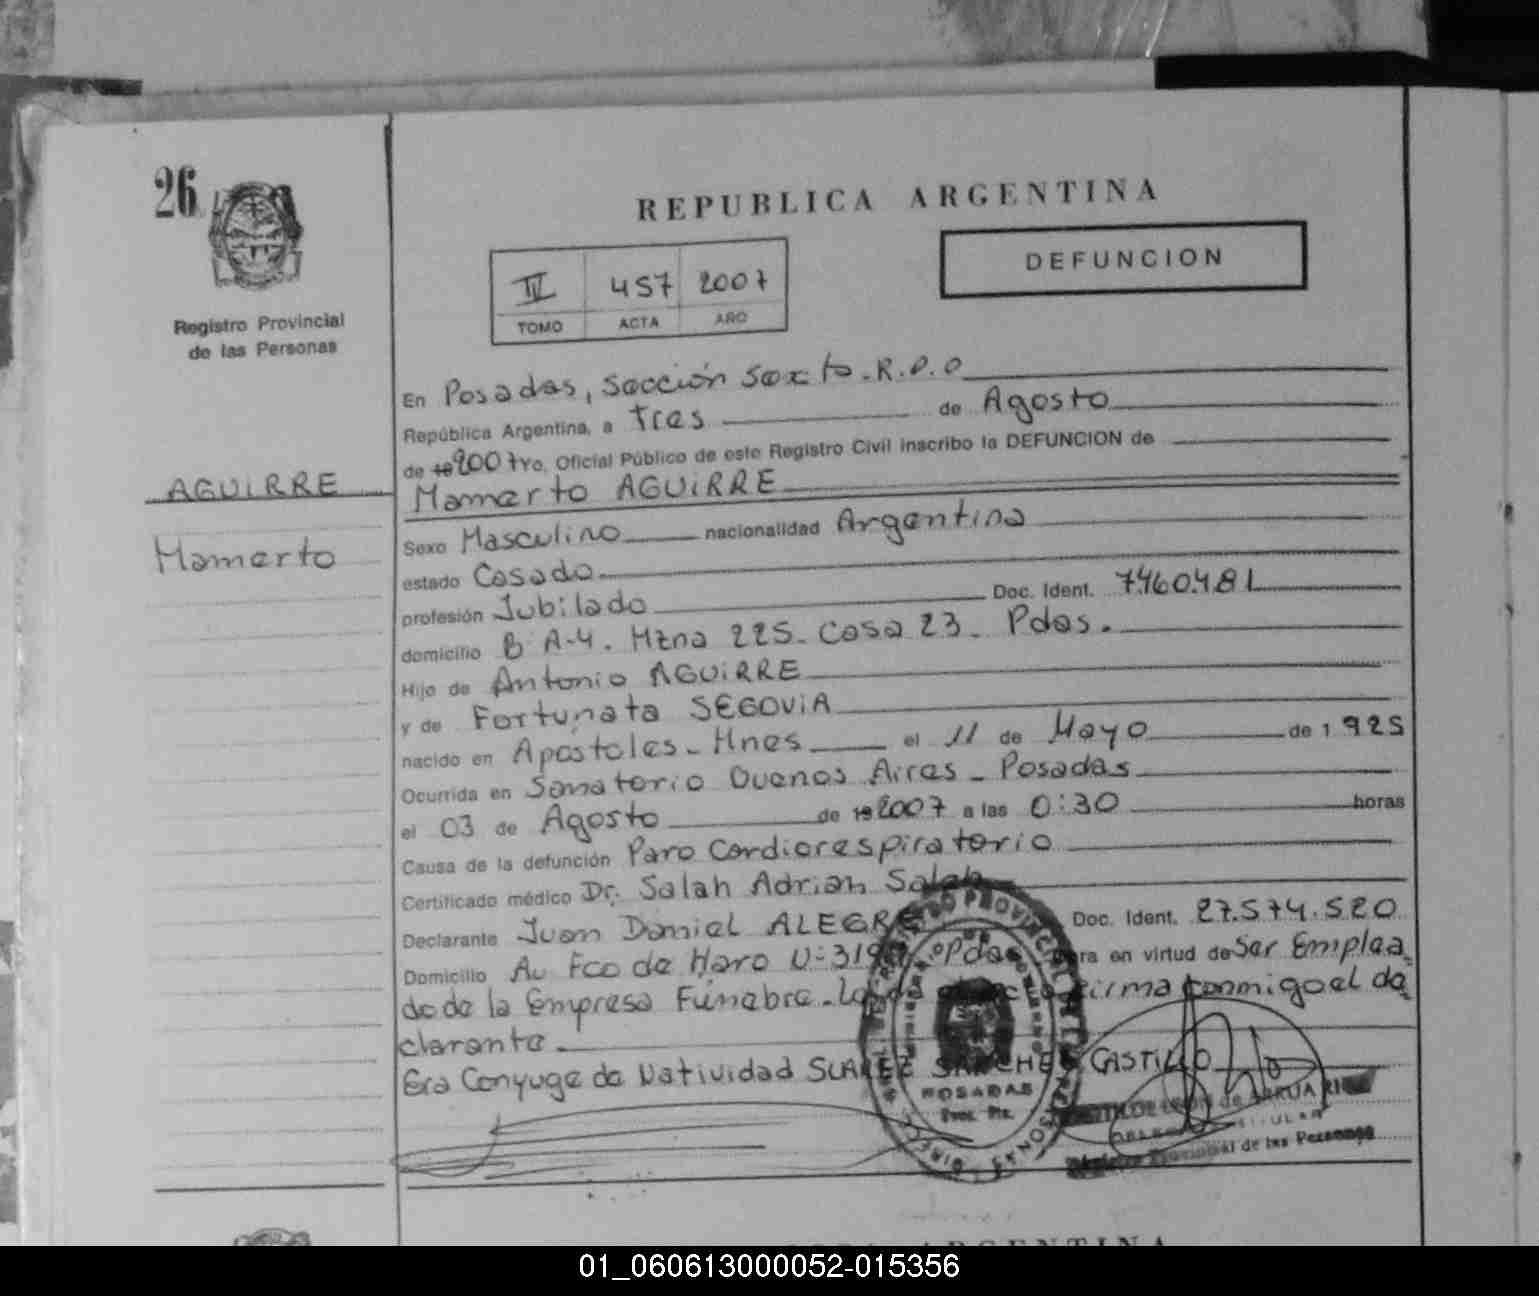 26
Registro Provincial
de las Personas
AGUIRRE
Mamerto
REPUBLICA ARGENTINA
DEFUNCION
IV 457 2007
TOMO ACTA AÑO
En Posadas, Sección Sexta. R.P.P
República Argentina, a Tres de Agosto
de 19 2007 Yo, Oficial Público de este Registro Civil inscribo la DEFUNCION de
Mamerto AGUIRRE
Sexo Masculino nacionalidad Argentina
estado Casado
profesión Jubilado Doc. Ident. 7.460.481
domicilio B A-4. Mzna 225. Casa 23. Pdas.
Hijo de Antonio AGUIRRE
y de Fortunata SEGOVIA
nacido en Apóstoles - Mnes el 11 de Mayo de 1925
Ocurrida en Sanatorio Buenos Aires - Posadas
el 03 de Agosto de 19 2007 a las 0:30 horas
Causa de la defunción Paro Cardiorespiratorio
Certificado médico Dr. Salah Adrian Saleh
Declarante Juan Daniel ALEGRE Doc. Ident. 27.574.520
Domicilio Av Fco de Haro Nº 319 Pdas obra en virtud de Ser Emplea
do de la Empresa Fúnebre. firma conmigo el de
clarante.
Era Conyuge de Natividad SUAREZ SANCHEZ CASTILLO
POSADAS
de ARRUA
TITULAR
Registro Provincial de las Personas
ARGENTINA
01_060613000052-015356